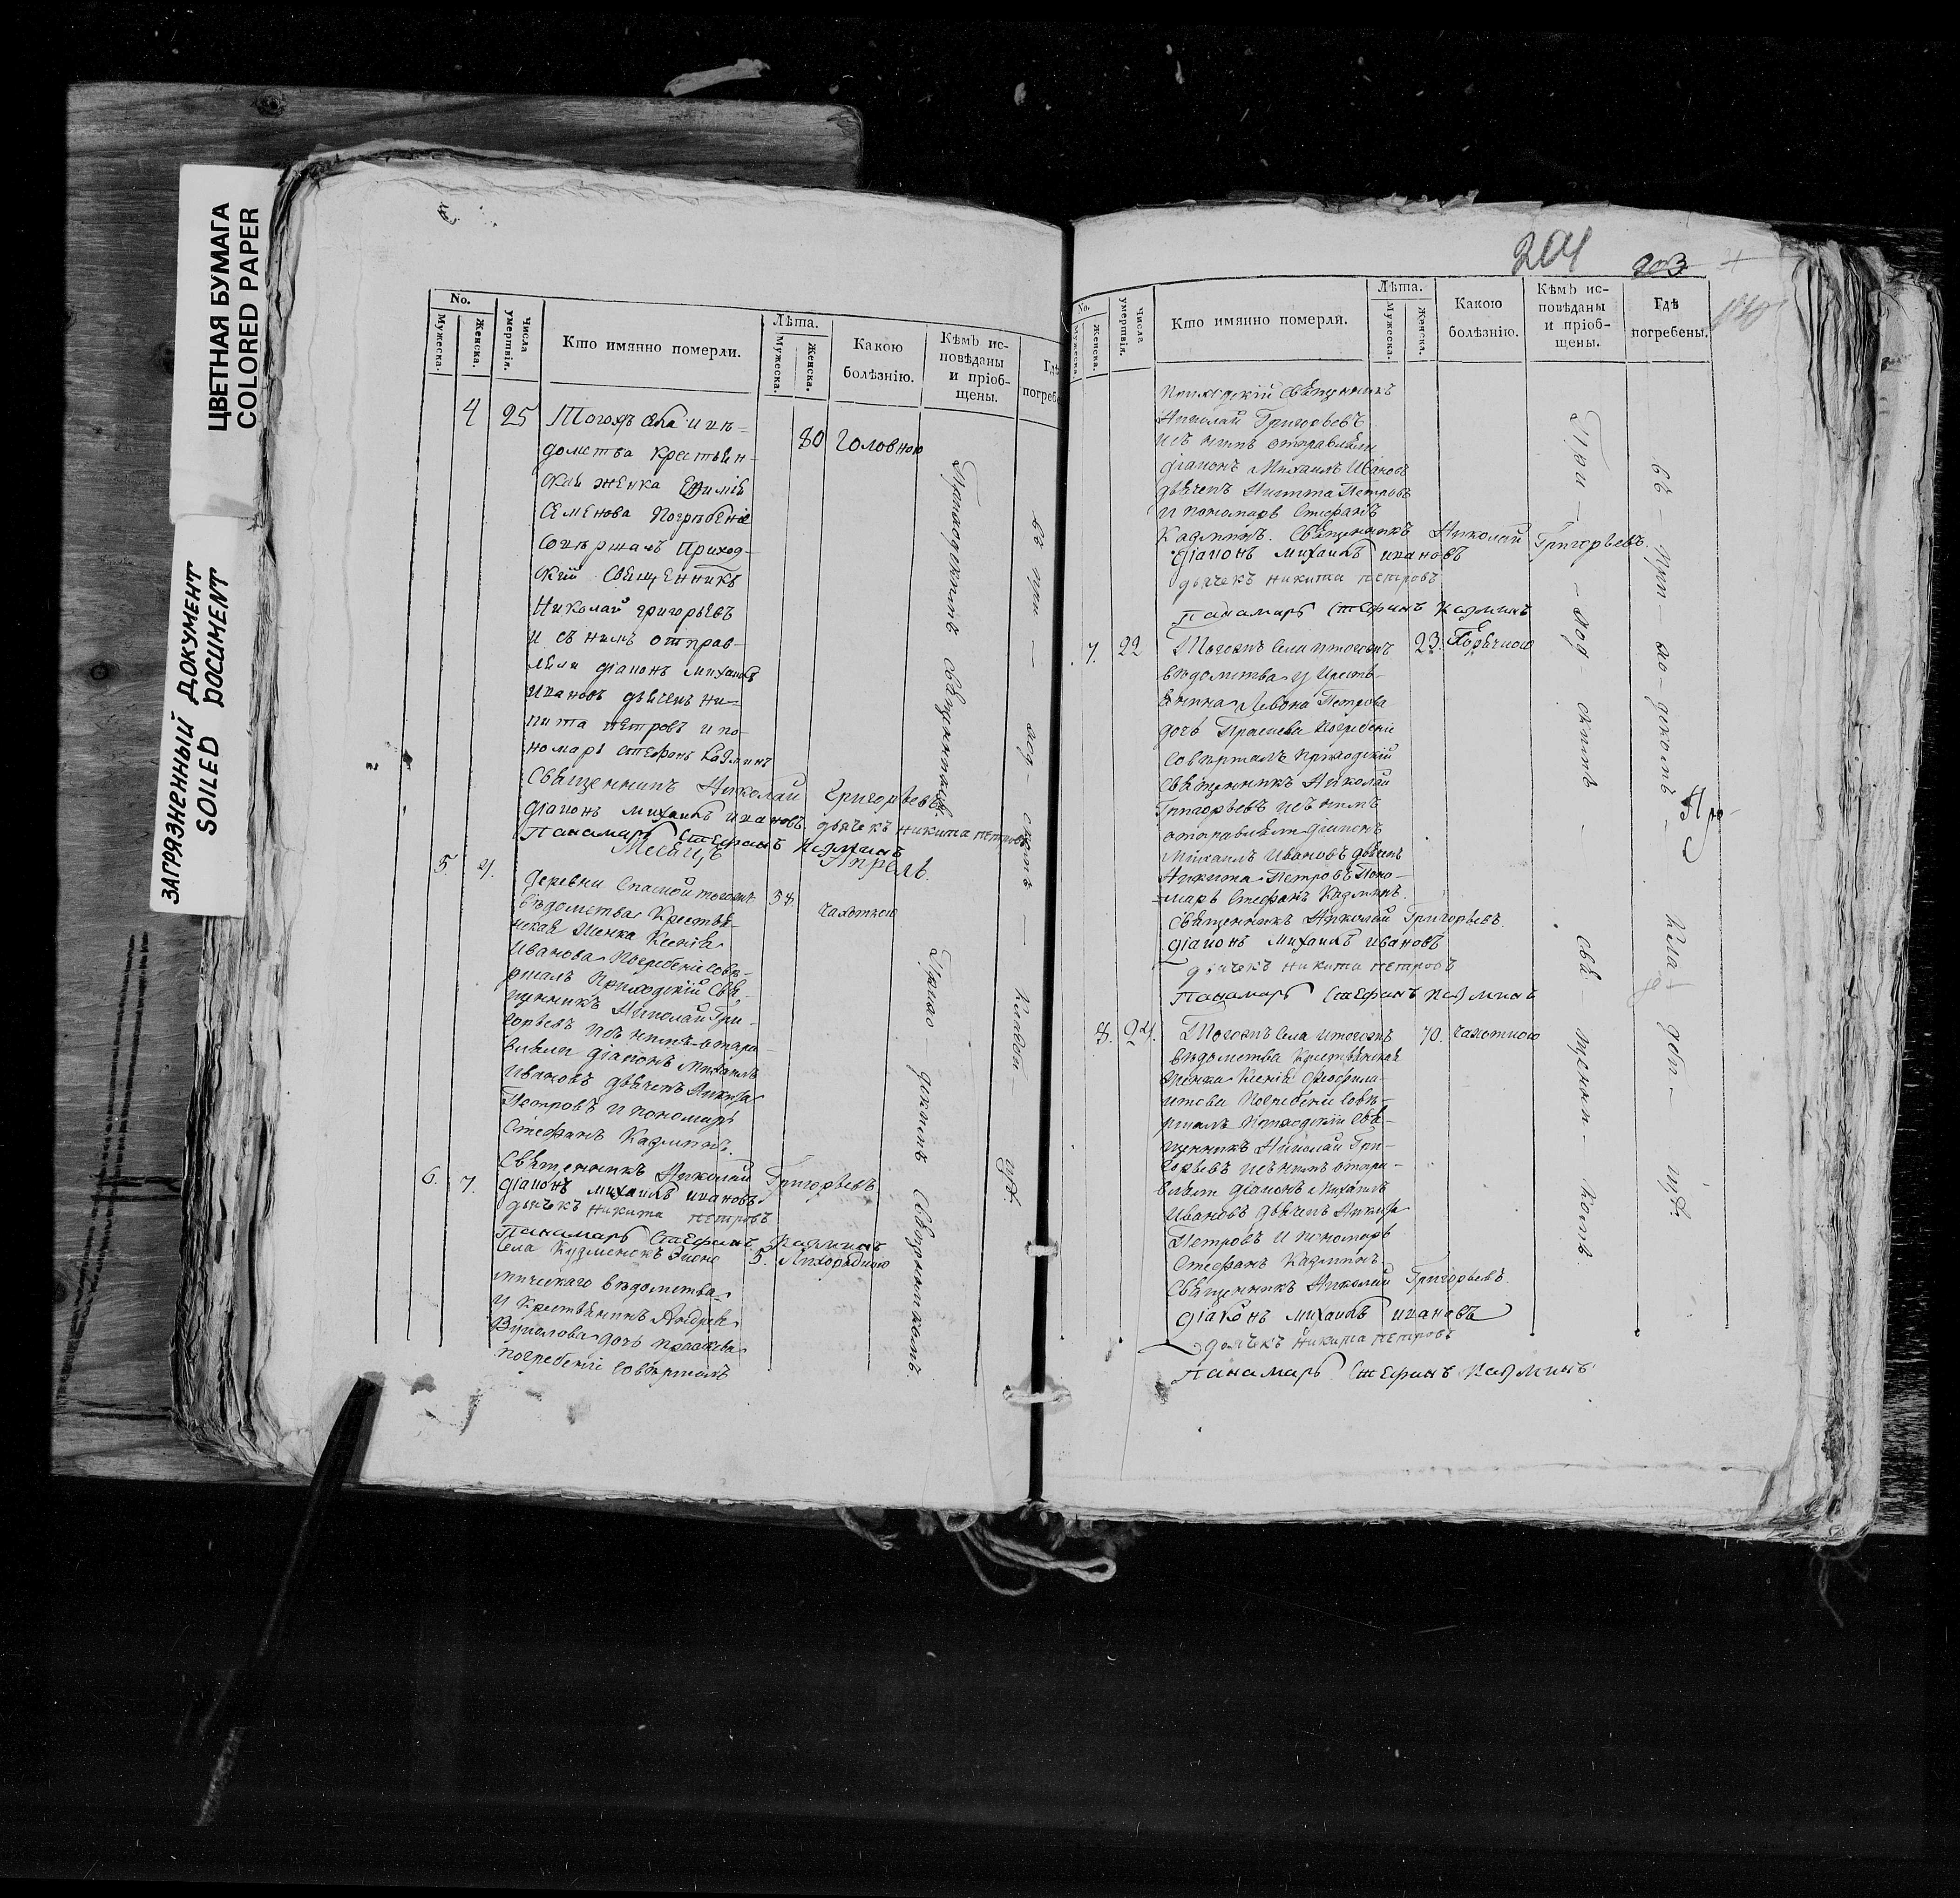 ЗАГРЯЗНЕННЫЙ ДОКУМЕНТ
SOILED DOCUMENT
ЦВЕТНАЯ БУМАГА
COLORED PAPER
No.
Мужеска.
Женска.
Числа умертвія.
Кто имянно померли.
Лѣта.
Мужеска.
Женска.
Какою болѣзнію.
Кѣмъ исповѣданы и пріобщены.
Гдѣ
4 25 Тогожъ села и вѣ-
80 Головною
домства крестьян-
ская женка
Семенова Погребеніе
совершалъ Приход-
скій Священникъ
Николай григорьевъ
и съ нимъ отправ-
ляли діаконъ михаилъ
ивановъ дьячекъ ни-
кита петровъ и по-
номарь стефанъ Казминъ
Священникъ Николай Григорьевъ.
діаконъ михаилъ ивановъ. дьячекъ никита петровъ
Панамарь Стефанъ Казминъ
Месяцъ Апрель.
5. 4.
деревни тогожъ 34.
вѣдомства Крестья- чахотною
нская женка Ксенія
Иванова Погребеніе сове-
ршалъ Приходскій Свя-
щенникъ Николай Гри-
горьевъ и съ нимъ отпра-
вляли діаконъ Михаилъ
Ивановъ дьячекъ Никита
Петровъ и пономарь
Стефанъ Казминъ.
Священникъ Николай Григорьевъ
6. 7. діаконъ михаилъ ивановъ
дьячекъ никита петровъ
Панамарь Стефанъ Казминъ
села 5. Лихорадкою
вѣдомства
у Крестьянина Андрея
дочь
погребеніе совершалъ
Приходскимъ священникомъ.
Приходскимъ Священникомъ.
въ при – ход – скомъ –
204 203
No.
Мужеска.
Женска.
Числа умертвія.
Кто имянно померли.
Лѣта.
Мужеска.
Женска.
Какою болѣзнію.
Кѣмъ исповѣданы и пріобщены.
Гдѣ погребены.
Приходскій Священникъ
Николай Григорьевъ
и съ нимъ отправляли
діаконъ Михаилъ Ивановъ
дьячекъ Никита Петровъ
и пономарь Стефанъ
Казминъ. Священникъ Николай Григорьевъ.
діаконъ михаилъ ивановъ
дьячекъ никита петровъ
Панамарь Стефанъ Казминъ
7. 22 Тогожъ села и тогожъ 23. Горячкою
вѣдомства у Кресть-
янина Левона Петрова
дочь Погребеніе
совершалъ Приходскій
Священникъ Николай
Григорьевъ и съ нимъ
отправляли діаконъ
Михаилъ Ивановъ дьячекъ
Никита Петровъ Поно-
марь Стефанъ Казминъ.
Священникъ Николай Григорьевъ.
діаконъ михаилъ ивановъ
дьячекъ никита петровъ
Панамарь Стефанъ Казминъ
8. 24. Тогожъ села и тогожъ 70. чахотною
вѣдомства Крестьянская
женка Ксенія
Погребеніе сове-
ршалъ Приходскій Свя-
щенникъ Николай Гри-
горьевъ и съ нимъ отпра-
вляли діаконъ Михаилъ
Ивановъ дьячекъ Никита
Петровъ и пономарь
Стефанъ Казминъ
Священникъ Николай Григорьевъ.
діаконъ михаилъ ивановъ
дьячекъ никита петровъ
Панамарь Стефанъ Казминъ
При – ход – скимъ – свя – щенни – комъ.
въ при – хо – дскомъ – кладби – щѣ.